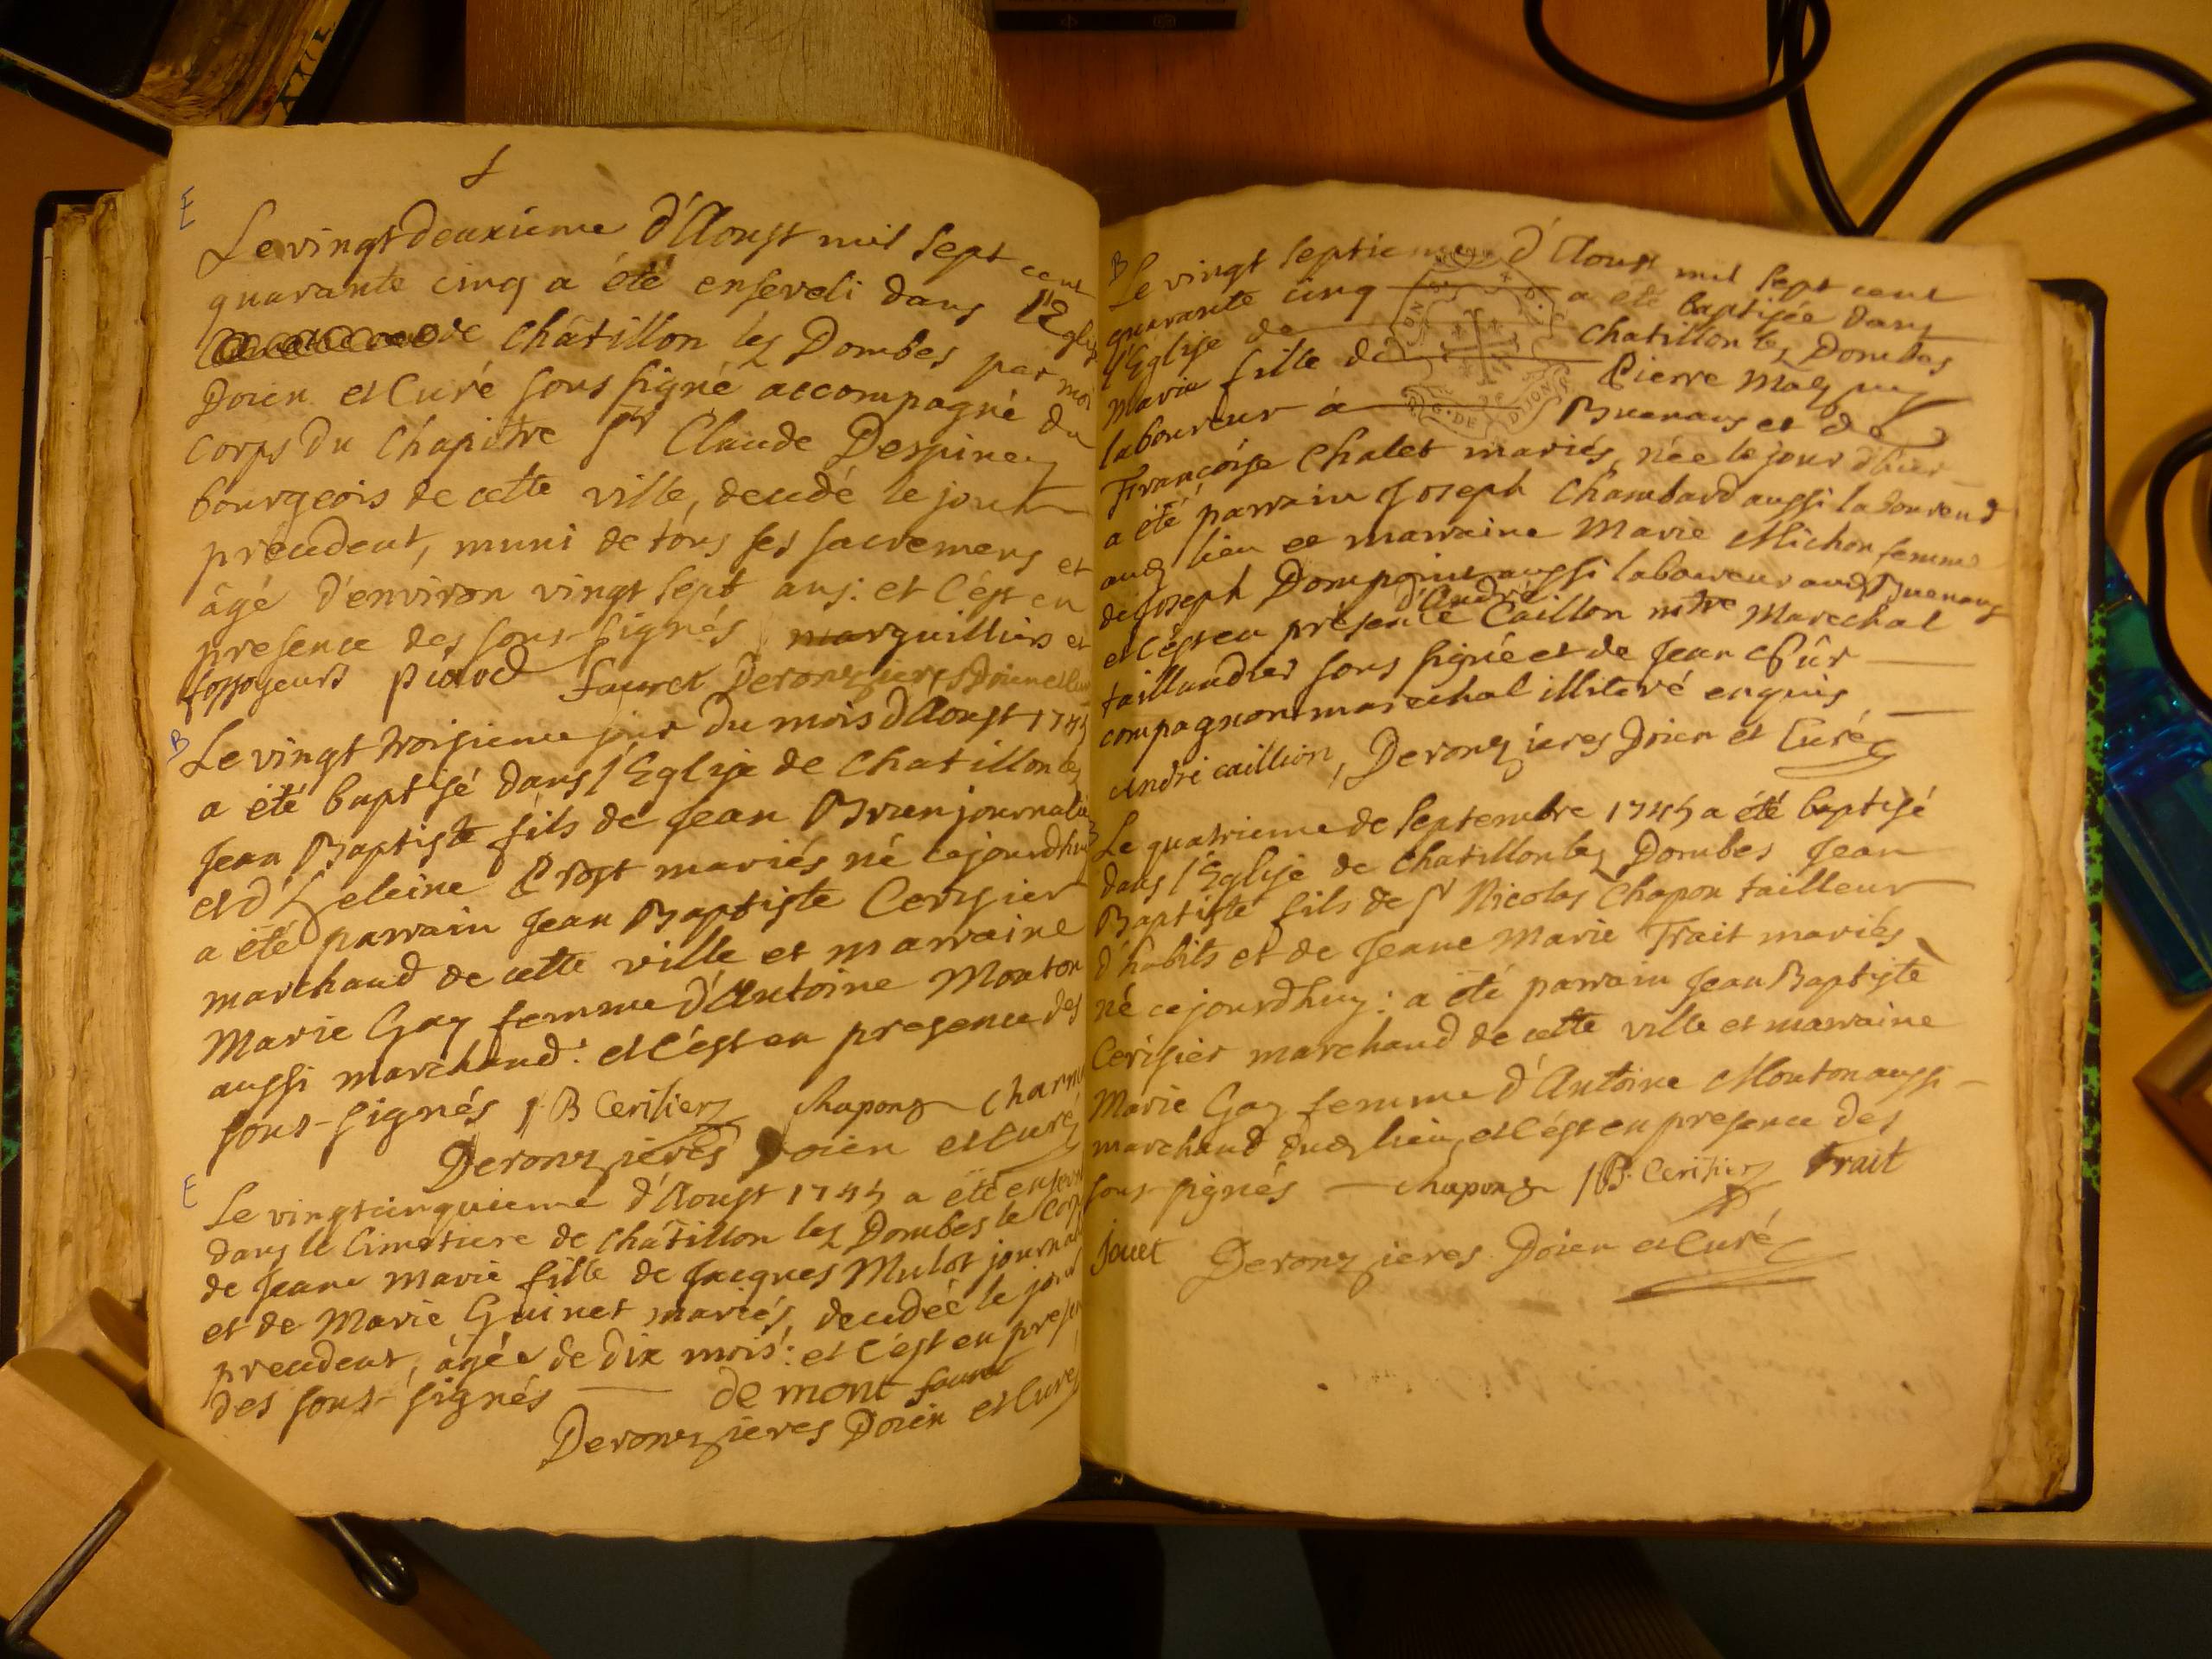 E
Le vingt deuxieme d'Aoust mil sept cent
quarante cinq a été enseveli dans l'Eglise
de Châtillon lez Dombes par moi
Doien et Curé sous signé accompagné du
corps du Chapitre Sr Claude Despiney
bourgeois de cette ville, decedé le jour
precedent, muni de tous ses sacremens et
âgé d'environ vingt sept ans: et c'est en
presence des sous-signés marguilliers et
fossoyeurs Fauret Deronzieres Doien et Curé
B
Le vingt troisieme jour du mois d'Aoust 1745
a été baptisé dans l'Eglise de Chatillon lez
Jean Baptiste fils de Jean Brun journalier
et d'Heleine Prost mariés né cejourdhuy
a été parrain Jean Baptiste Cerisier
marchand de cette ville et marraine
Marie Gay femme d'Antoine Mouton
aussi marchand: et c'est en presence des
sous-signés JB Cerisier Chapon Charme
Deronzieres Doien et Curé
E
Le vingtcinquieme d'Aoust 1745 a été enseveli
dans le Cimetiere de Châtillon lez Dombes le corps
de Jeane Marie fille de Jacques Mulot journalier
et de Marie Guinet mariés, decedée le jour
precedent, âgée de dix mois: et c'est en presence
des sous-signés de mont fauret
Deronzieres Doien et Curé
B
Le vingt septieme d'Aoust mil sept cent
quarante cinq a été baptisée dans
l'Eglise de Chatillon lez Dombes
Marie fille de Pierre
laboureur à Buenans et de
Françoise Chalet mariés, née le jour d'hier
a été parrain Joseph Chambard aussi laboureur
audt lieu et marraine Marie Michon femme
de Joseph Dompoint aussi laboureur audt Buenans
et c'est en présence d'André Caillon mtre Marechal
taillandier sous signé et de Jean
compagnon marechal illiteré enquis
andré caillion, Deronzieres Doien et Curé
B
Le quatrieme de Septembre 1745 a été baptisé
dans l'Eglise de Chatillon lez Dombes Jean
Baptiste fils de Sr Nicolas Chapon tailleur
d'habits et de Jeane Marie Trait mariés
né cejourdhuy: a été parrain Jean Baptiste
Cerisier marchand de cette ville et marraine
Marie Gay femme d'Antoine Mouton aussi
marchand dudt lieu, et c'est en presence des
sous-signés Chapon JB Cerisier Trait
Jouet Deronzieres Doien et Curé